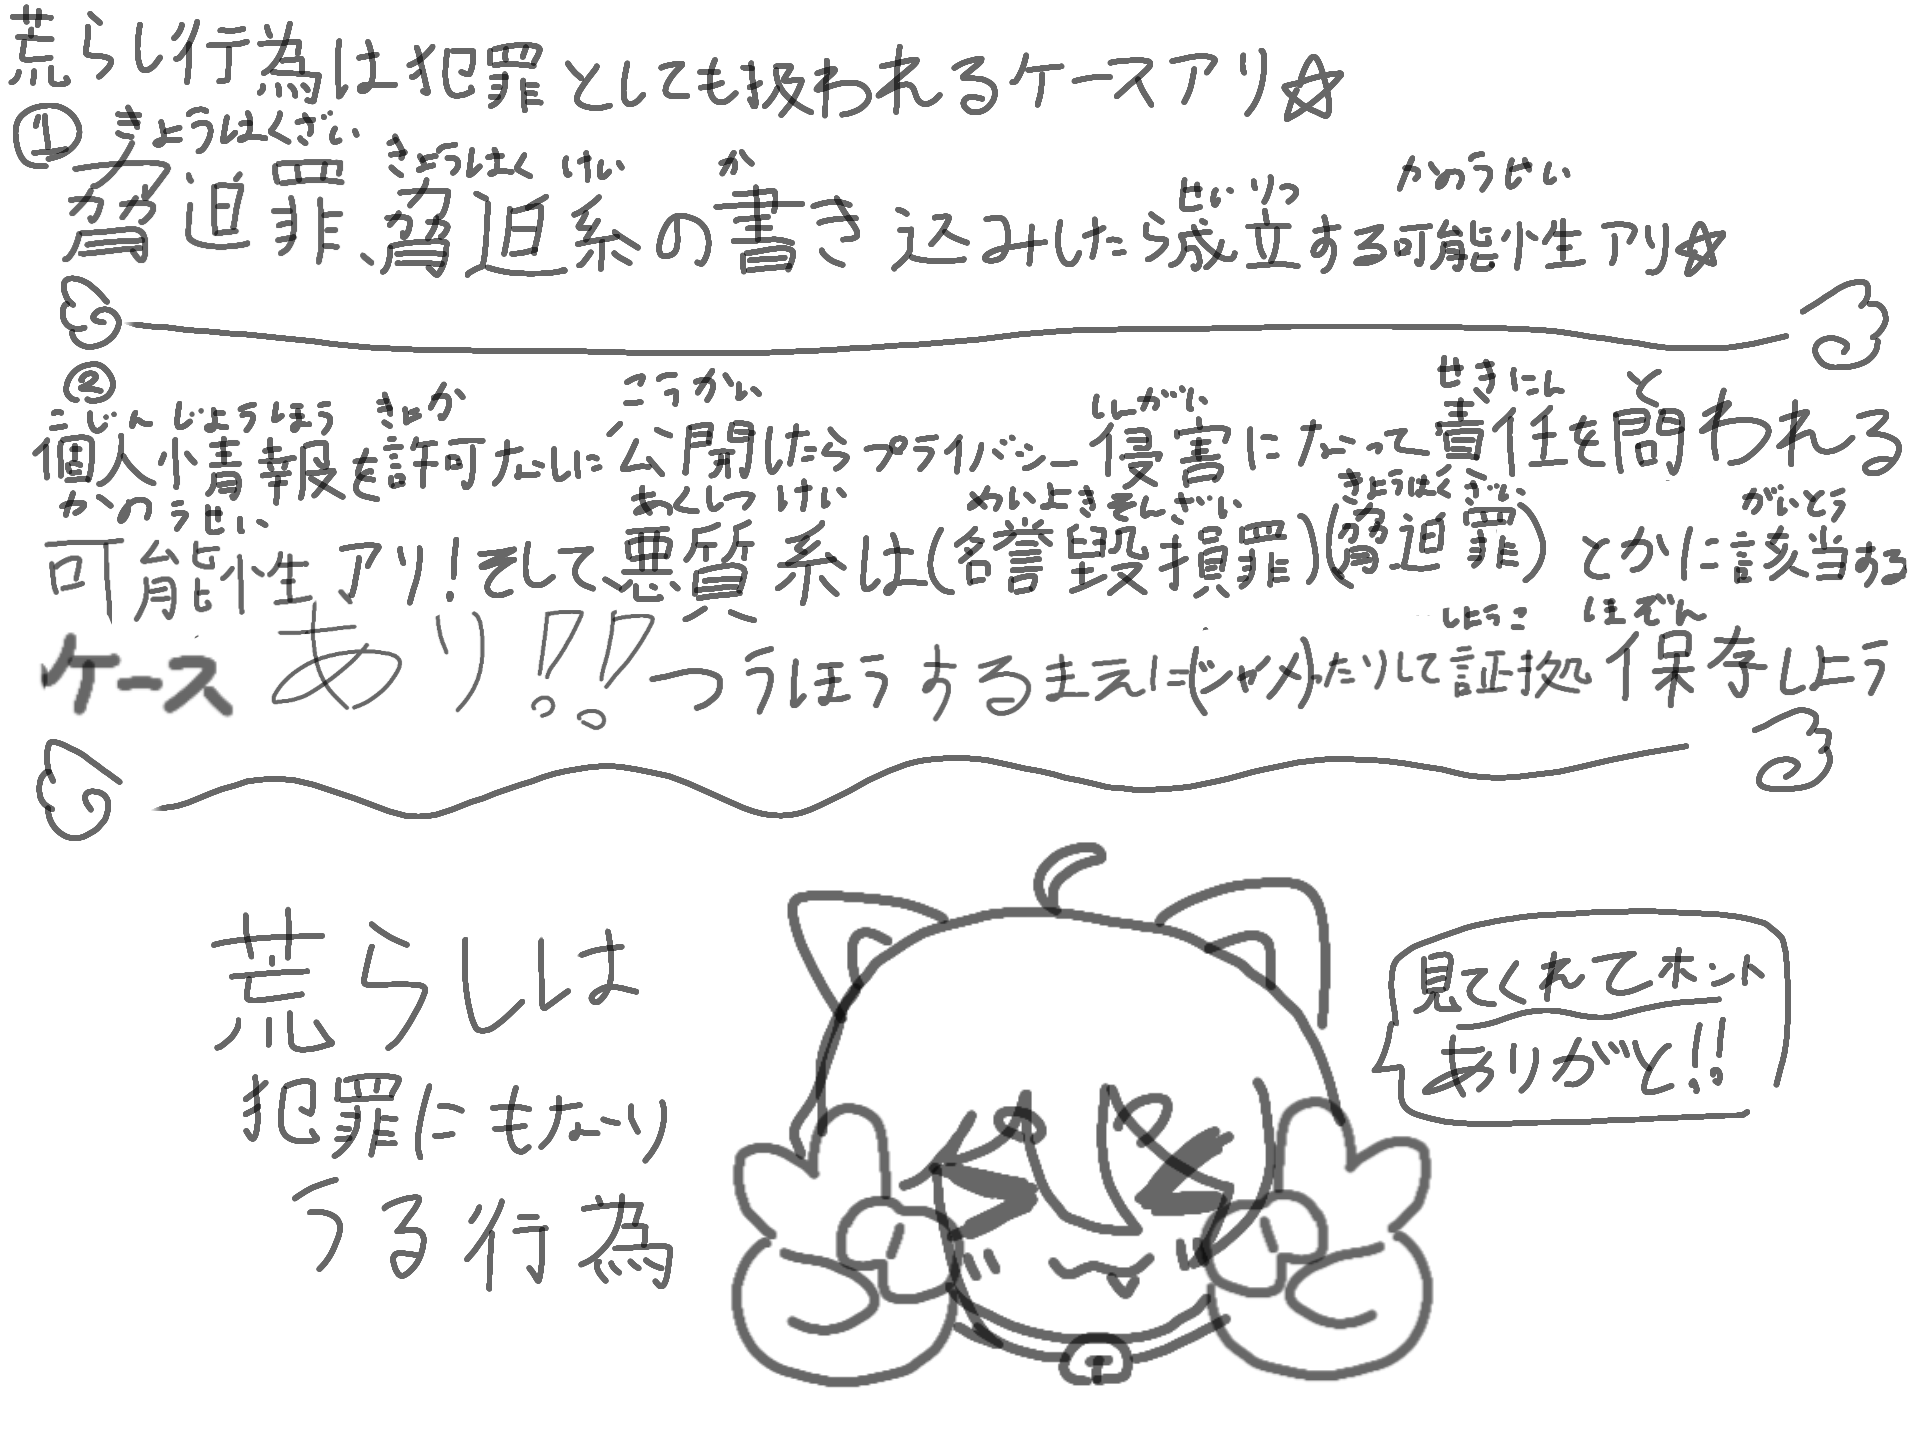 荒らし行為は犯罪としても扱われるケースアリ☆
① きょうはくざい きょうはく けい か せいりつ かのうせい
脅迫罪、脅迫系の書き込みしたら成立する可能性アリ☆
②
こじんじょうほう きょか こうかい しんがい せきにん と
個人情報を許可ないに公開したらプライバシー侵害になって責任を問われる
かのうせい あくしつ けい めいよきそんざい きょうはくざい がいとう
可能性アリ!そして、悪質系は(名誉毀損罪)(脅迫罪)とかに該当する
しょうこ ほぞん
ケースあり!!つうほうするまえに(ジャメ)ったりして証拠保存しよう
荒らしは
犯罪にもなり
うる行為
見てくれてホント
ありがと!!